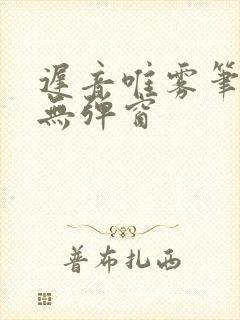 遲音唯雾筆
無弹窗
普布扎西